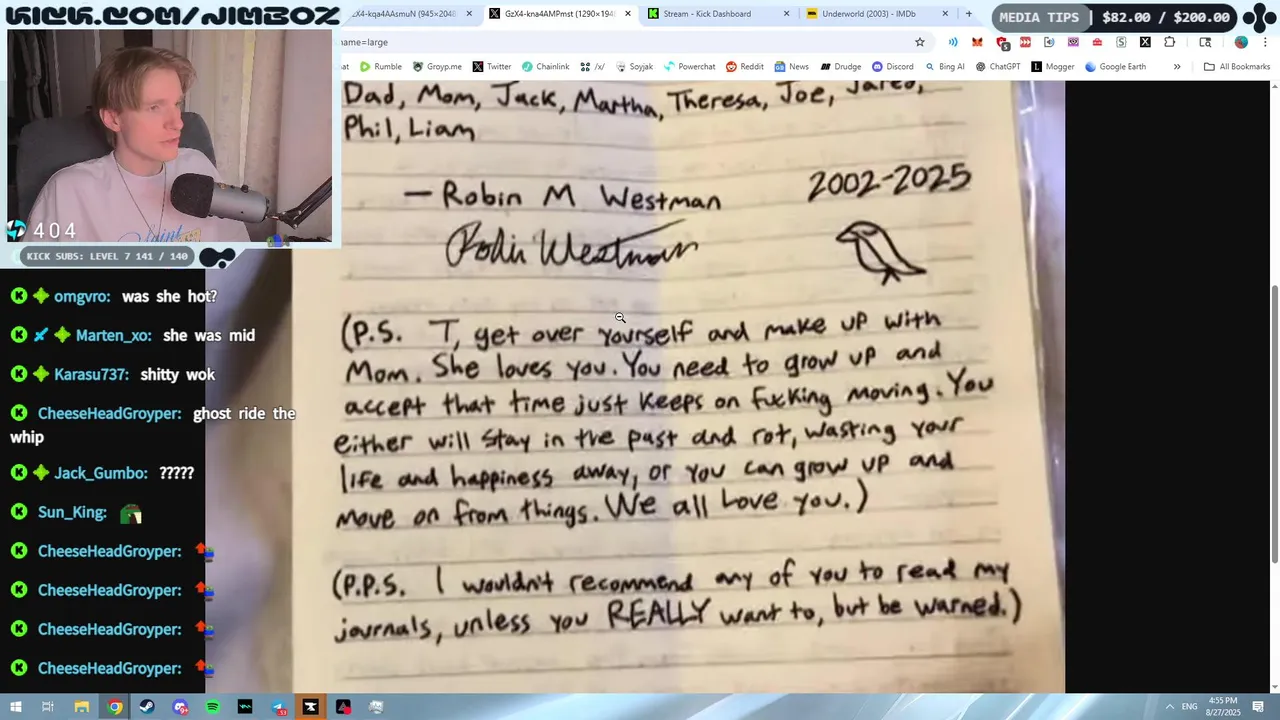 KICK.COM/JIMBOX
GzX4-kqa4AAsmuN (945×2048
GzX4-kna4AMPmst (1290×194
Stream - Kick Dashboard
Underworld (2003) - IMDb
MEDIA TIPS | $82.00 / $200.00
name=large
Rumble
Groyp.me
Twitter
Chainlink
/x/
Soyjak
Powerchat
Reddit
News
Drudge
Discord
Bing AI
ChatGPT
Mogger
Google Earth
All Bookmarks
Dad, Mom, Jack, Martha, Theresa, Joe, Jared,
Phil, Liam
— Robin M Westman
2002-2025
Robin Westman
(P.S. T, get over yourself and make up with
Mom. She loves you. You need to grow up and
accept that time just keeps on fucking moving. You
either will stay in the past and rot, wasting your
life and happiness away, or you can grow up and
move on from things. We all love you.)
(P.P.S. I wouldn't recommend any of you to read my
journals, unless you REALLY want to, but be warned.)
404
KICK SUBS: LEVEL 7 141 / 140
omgvro: was she hot?
Marten_xo: she was mid
Karasu737: shitty wok
CheeseHeadGroyper: ghost ride the
whip
Jack_Gumbo: ?????
Sun_King:
CheeseHeadGroyper:
CheeseHeadGroyper:
CheeseHeadGroyper:
CheeseHeadGroyper:
ENG
4:55 PM
8/27/2025